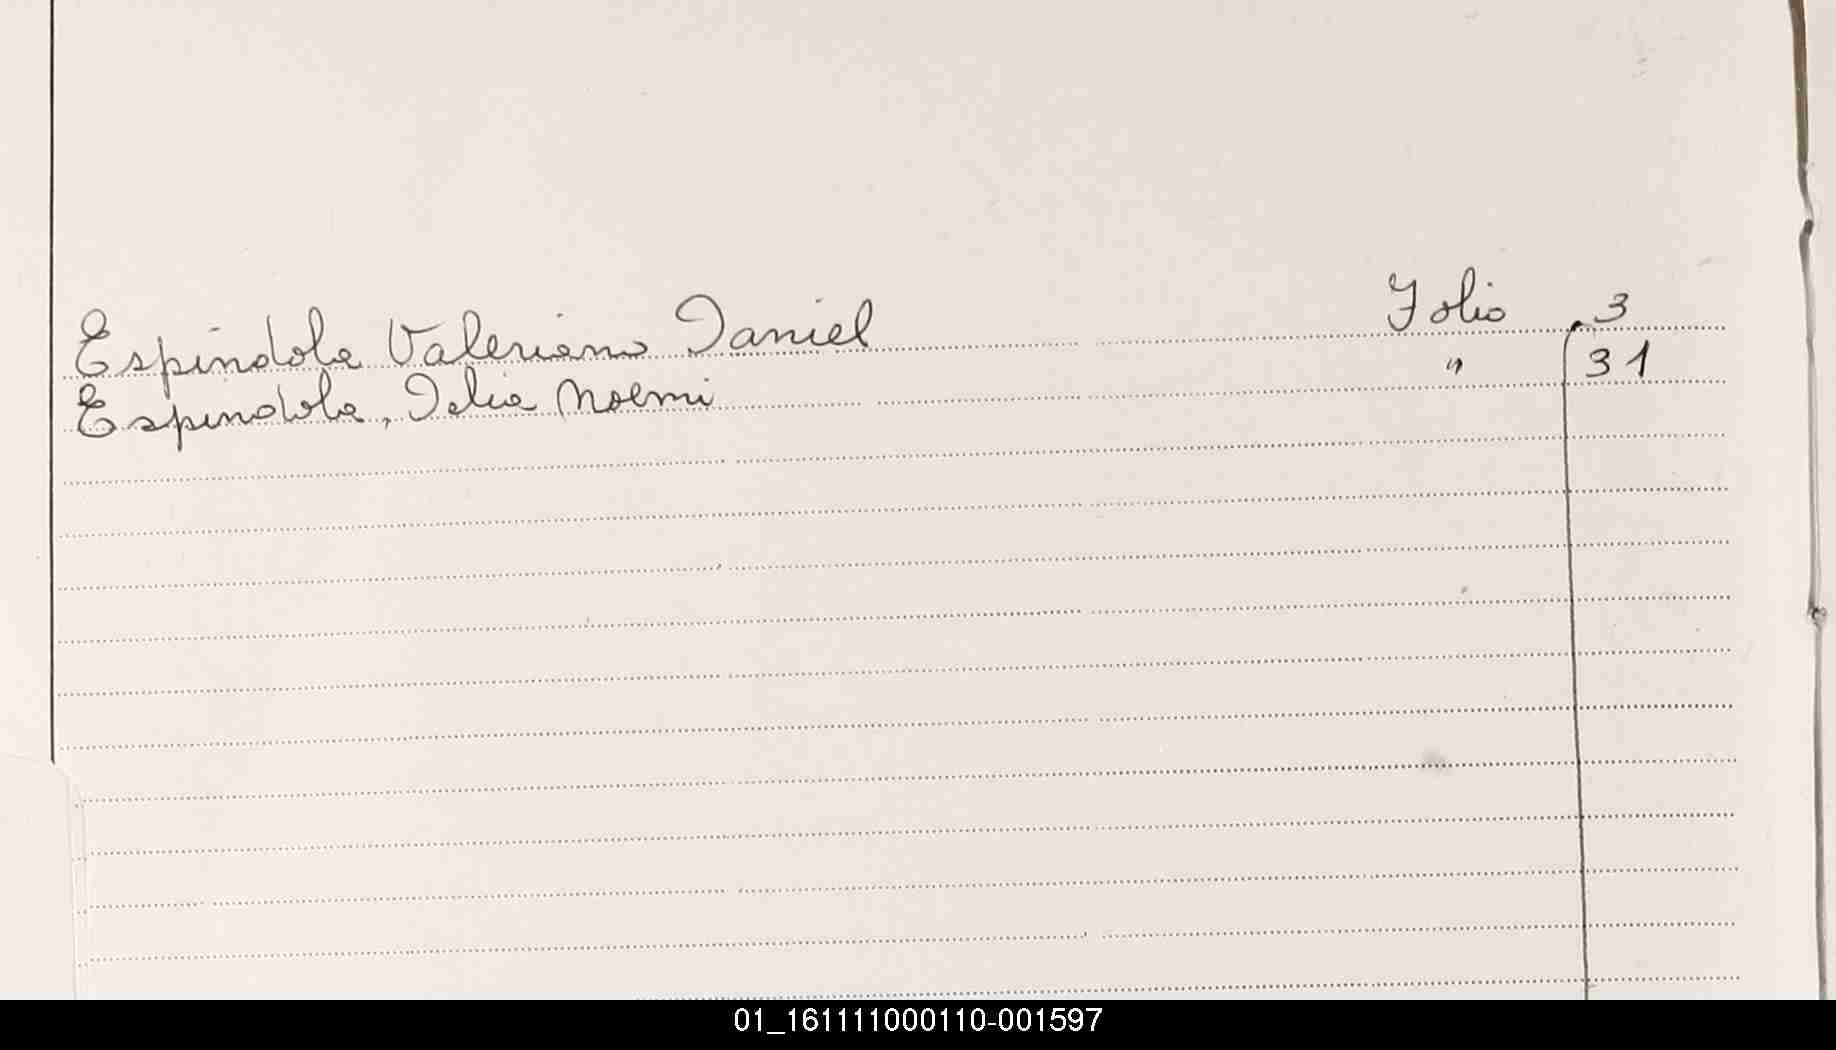 Espindola Valeriano Daniel Folio 3
Espindola, Delia Noemi " 31
01_161111000110-001597